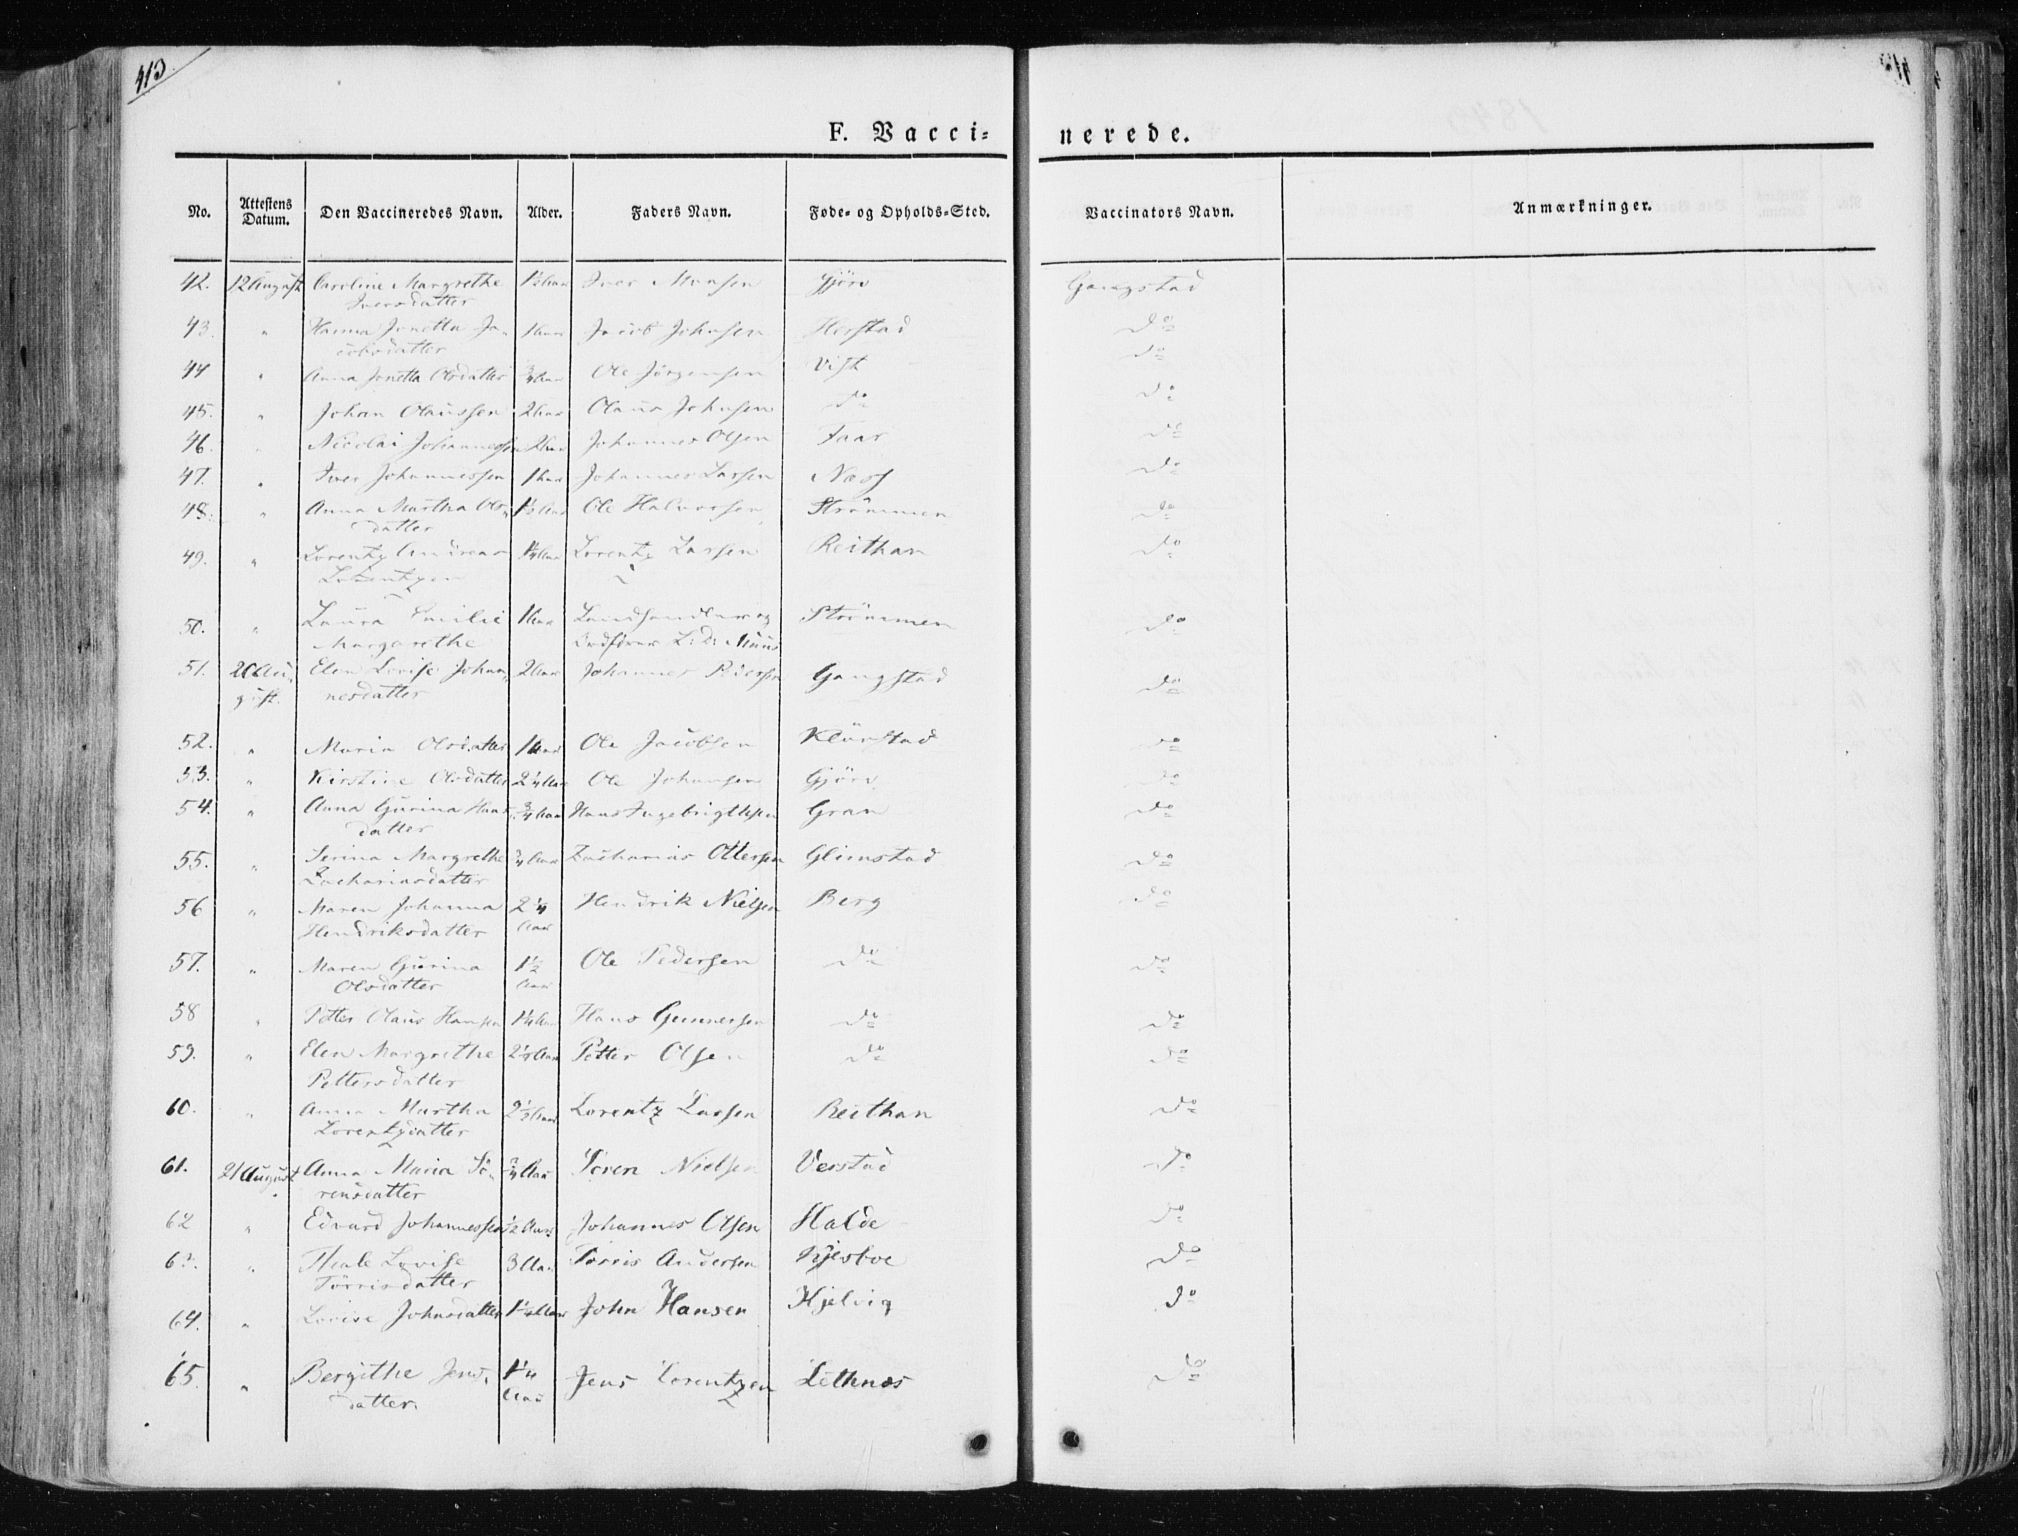 413
F. Vacci=
nerede.
No.
Attestens Datum.
Den Vaccineredes Navn.
Alder.
Faders Navn.
Føde- og Opholds-Sted.
Vaccinators Navn.
Anmærkninger.
42. 12 August Caroline Margrethe Iversdatter 1½ Aar Iver Monsen Gjörv Gangstad
43. " Hanna Jonetta Jacobsdatter 1 Aar Jacob Johnsen Herstad do
44 " Anna Jonetta Olsdatter ¾ Aar Ole Jörgensen Vist do
45. " Johan Olaussen 2 Aar Olaus Johnsen do do
46. " Nicolai Johannessen 2 Aar Johannes Olsen Faar do
47. " Iver Johannessen 1 Aar Johannes Larsen Næss do
48. " Anna Martha Olsdatter 1½ Aar Ole Halvorsen Strömmen do
49. " Lorentz Andreas Lorentzen 1¼ Aar Lorentz Larsen Reithan do
50. " Laura Emilie Margarethe 1 Aar Landhandler og Strömmen do
51. 20 August Elen Lovise Johannesdatter 2 Aar Johannes Pedersen Gangstad do
52. " Maria Olsdatter 1 Aar Ole Jacobsen Klürstad do
53. " Kirstine Olsdatter 2¼ Aar Ole Johansen Gjörv do
54. " Anna Gurina Hansdatter ¾ Aar Hans Ingebrigtsen Gran do
55. " Serina Margrethe Zachariasdatter ¾ Aar Zacharias Ottersen Glimstad do
56 " Maren Johanna Hendriksdatter 2¼ Aar Hendrik Nielsen Berg do
57. " Maren Gurina Olsdatter 1½ Aar Ole Pedersen do do
58 " Petter Olaus Hansen 1¼ Aar Hans Gunnersen do do
59. " Elen Margrethe Pettersdatter 2½ Aar Petter Olsen do do
60. " Anna Martha Lorentzdatter 2½ Aar Lorentz Larsen Reithan do
61. 21 August Anna Maria Sörensdatter ¾ Aar Sören Nielsen Verstad do
62 " Edvard Johannessen ½ Aar Johannes Olsen Halde do
63. " Lovise Törrisdatter 3 Aar Törris Andersen do
64. " Lovise Johnsdatter John Hansen Hjelvig do
65. " Bergithe Jensdatter 1¼ Aar Jens Lorentzen Lethnes do